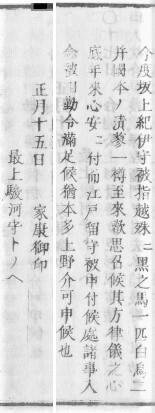 今度坂上紀伊守被指越殊ニ黒之馬一匹白鳥二
并國本ノ漬蓼一樽至來歡思召候其方律儀之心
底年來心安ニ付而江戸留守被申付候處諸事入
念被相勤令滿足候猶本多上野介可申候也
正月十五日 家康御印
最上駿河守トノヘ